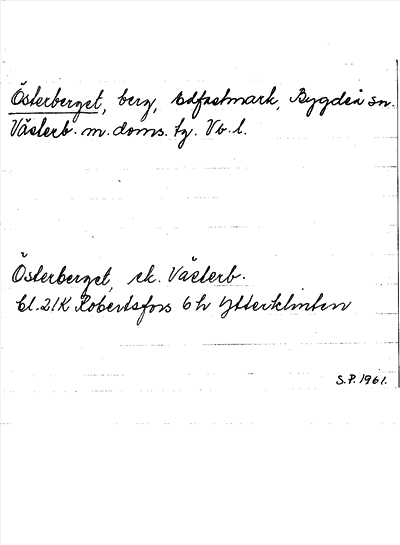 Österberget, berg, Edfastmark, Bygdeå sn.
Västerb. m. doms. tg. Vb. l.
Österberget, ek. Västerb.
bl. 21K Robertsfors 6 h Ytterklinten
S.P. 1961.